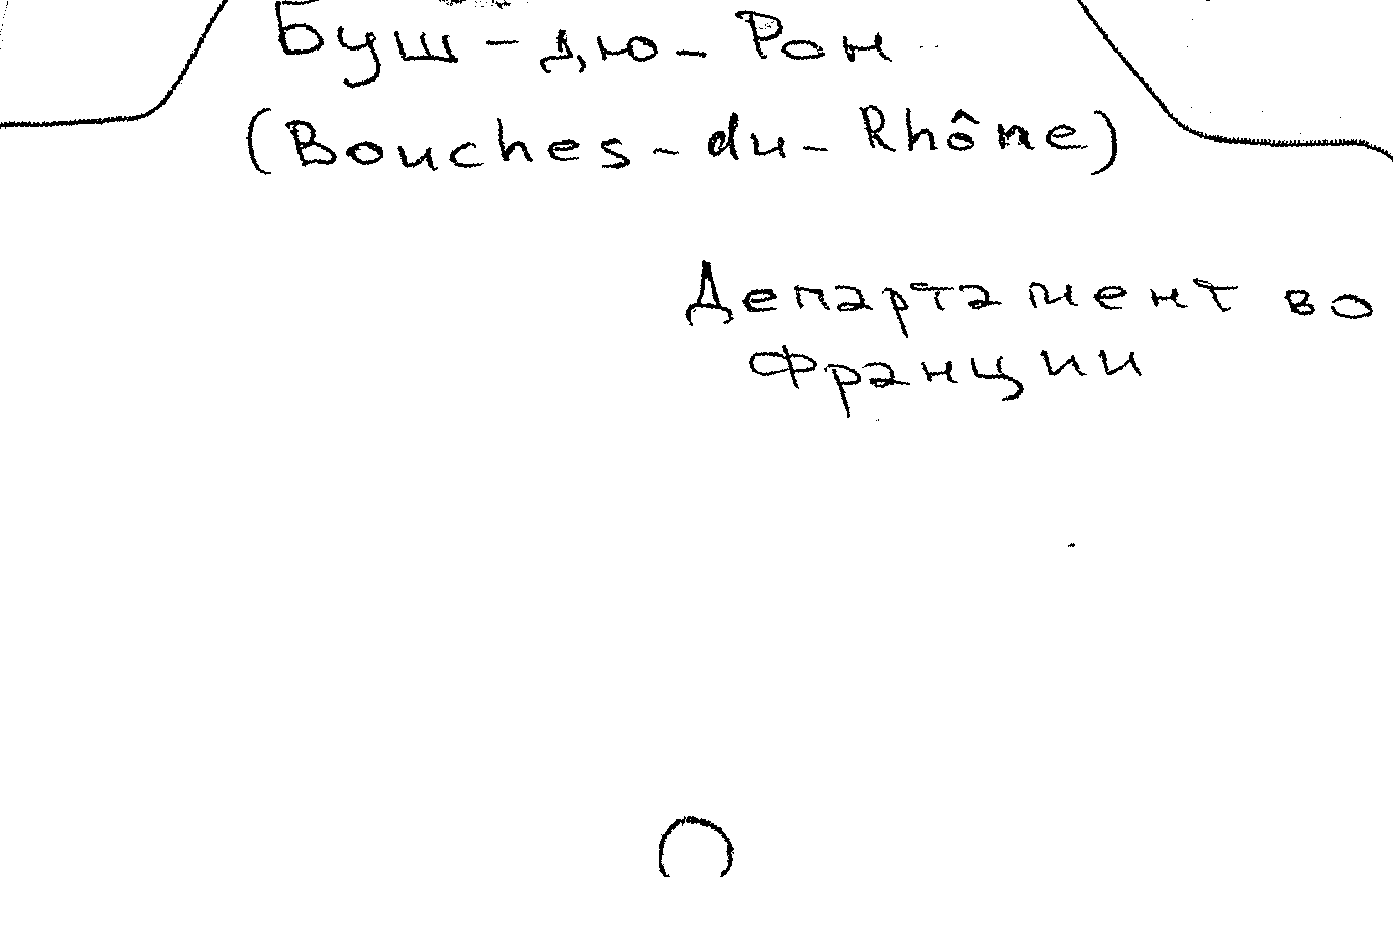 Буш-дю-Рон
(Bouches-du-Rhône)
Департамент во
Франции